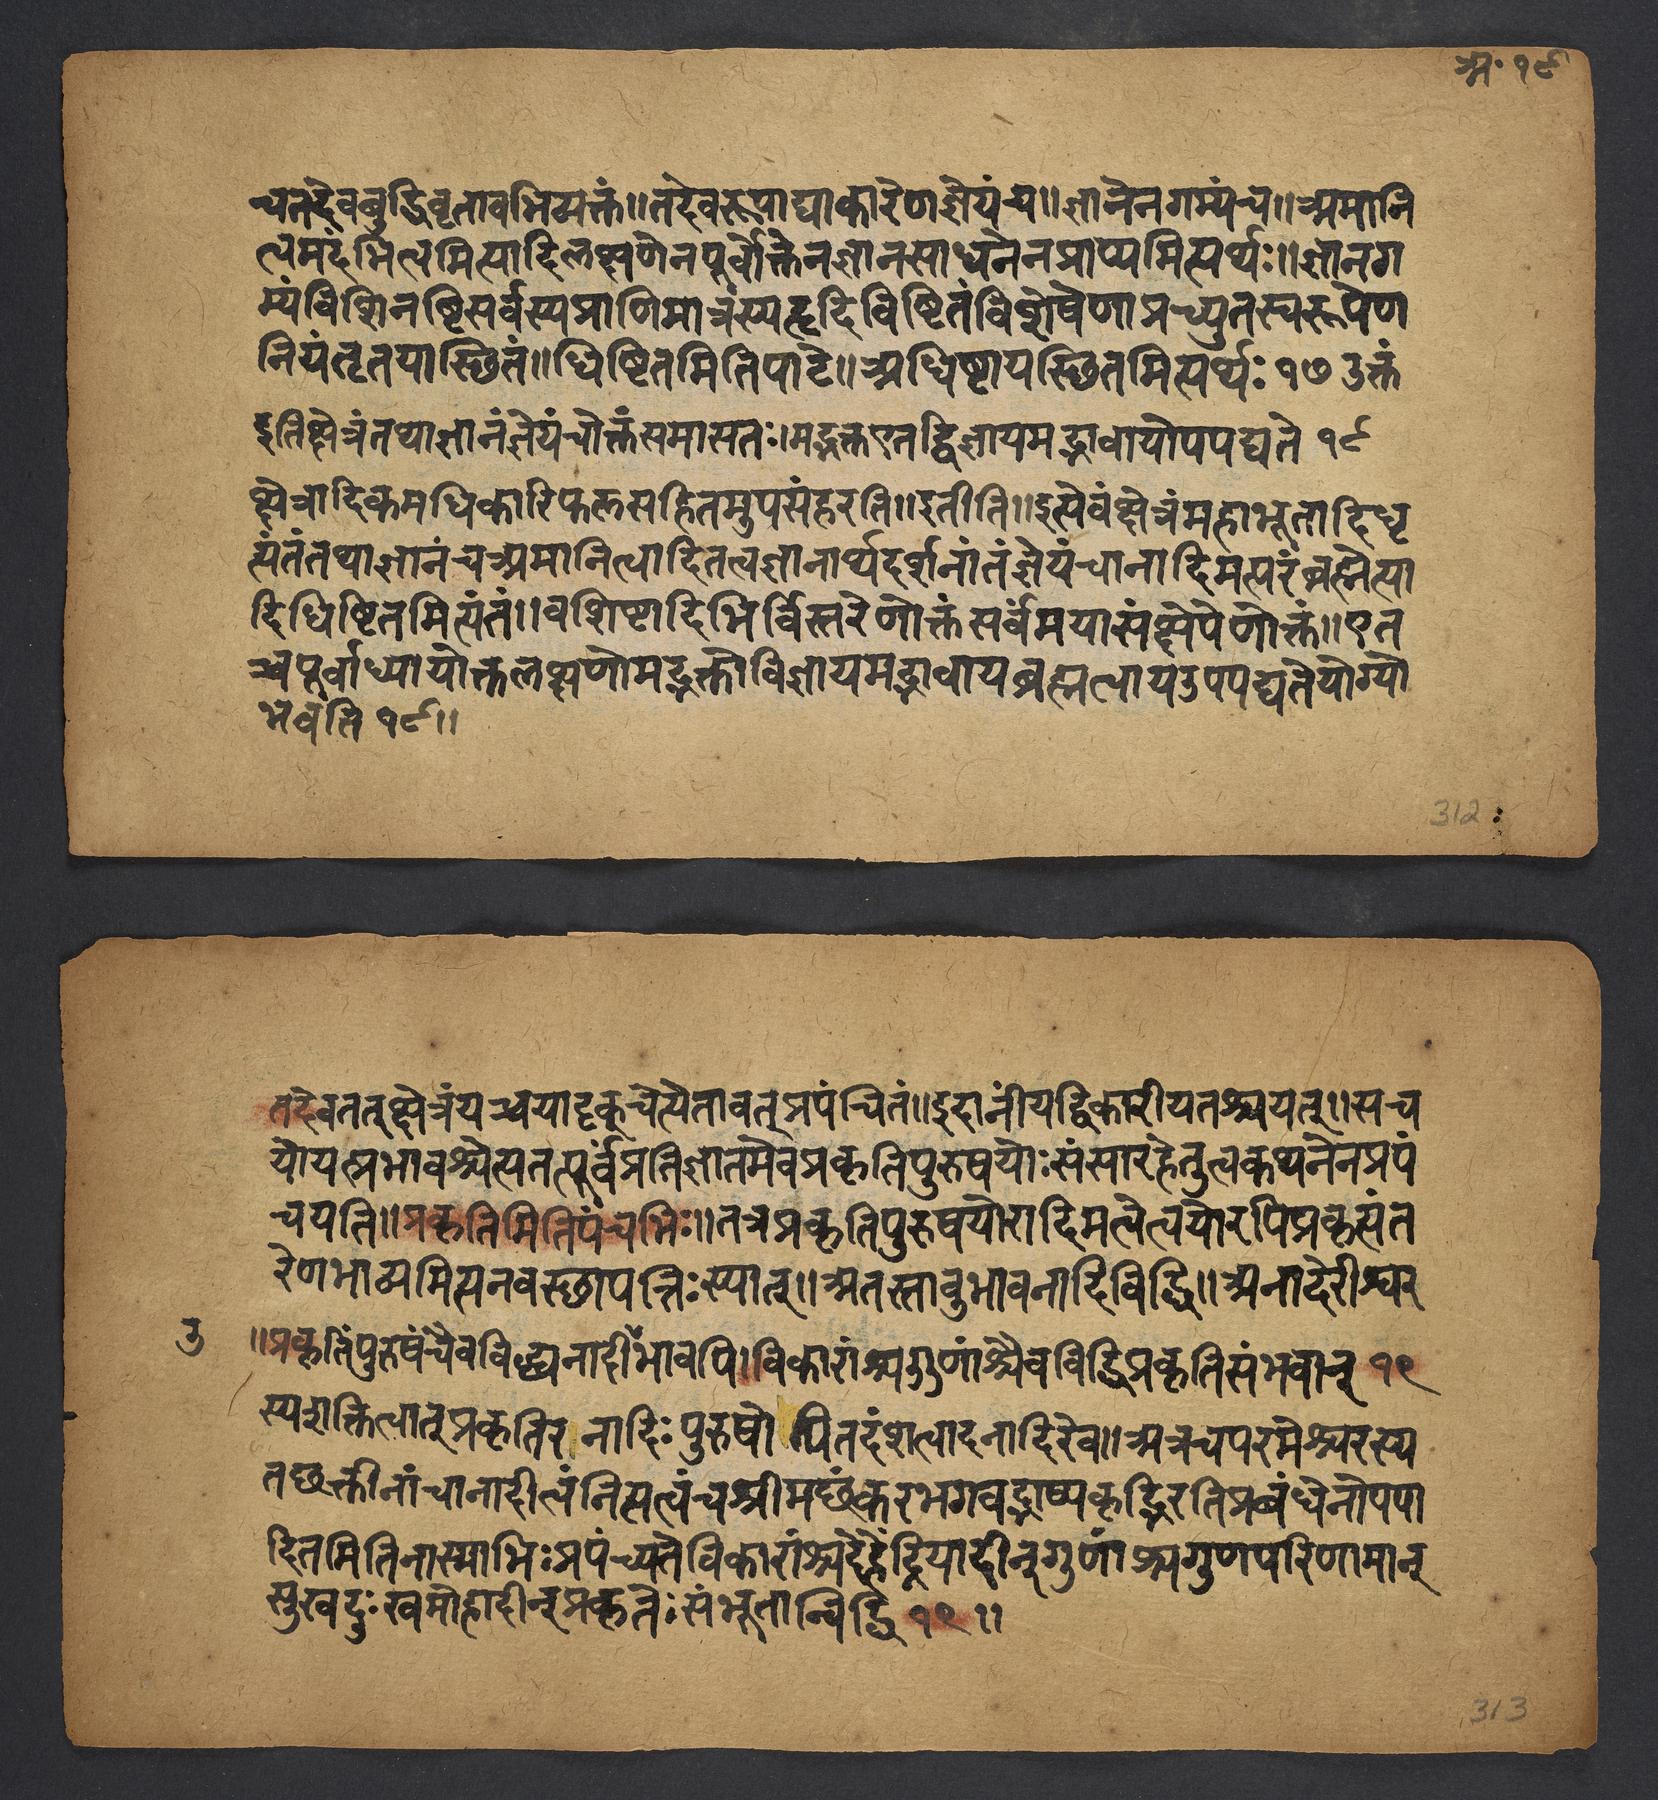 अ॰ १८
च्यतदेवबुद्धिवृतावभिव्यक्तं॥तदेवरूपाद्याकारेणज्ञेयंच॥ज्ञानेनगम्यंच॥अमानि
त्वमदंभित्वमित्यादिलक्षणेनपूर्वोक्तेनज्ञानसाधनेनप्राप्यमित्यर्थः॥ज्ञानग
म्यंविशिनष्टिसर्वस्यप्राणिमात्रस्यहृदिविष्टितंविशेषेणाप्रच्युतस्वरूपेण
नियंतृतयास्छितं॥धिष्टितमितिपाटे॥अधिष्टायस्छितमित्यर्थः १७ उक्तं
इतिक्षेत्रंतथाज्ञानंज्ञेयंचोक्तंसमासतः।मद्भक्तएतद्विज्ञायमद्भावायोपपद्यते १८
क्षेत्रादिकमधिकारिफलसहितमुपसंहरति॥इतीति॥इत्येवंक्षेत्रंमहाभूतादिधृ
त्यंतंतथाज्ञानंचअमानित्वादितत्वज्ञानार्थदर्शनांतंज्ञेयंचानादिमत्परंब्रह्मेत्या
दिधिष्टितमित्यंतं॥वशिष्टादिभिर्विस्तरेणोक्तंसर्वंमयासंक्षेपेणोक्तं॥एत
च्चपूर्वाध्यायोक्तलक्षणोमद्भक्तोविज्ञायमद्भावायब्रह्मत्वायउपपद्यतेयोग्यो
भवति १८॥
312
तदेवतत्क्षेत्रंयच्चयादृक्चेत्येतावत्प्रपंचितं॥इदानींयद्विकारीयतश्चयत्॥सच
योयत्प्रभावश्चेत्यतत्पूर्वंप्रतिज्ञातमेवप्रकृतिपुरुषयोःसंसारहेतुत्वकथनेनप्रपं
चयति॥प्रकृतिमितिपंचभिः॥तत्रप्रकृतिपुरुषयोरादिमत्वेत्वयोरपिप्रकृत्यंत
रेणभाव्यमित्यनवस्छापत्तिःस्यात्॥अतस्तावुभावनादिविद्धि॥अनादेरीश्वर
उ ॥प्रकृतिंपुरुषंचैवविद्ध्यनादीउभावपि।विकारांश्चगुणांश्चैवविद्धिप्रकृतिसंभवान् १९
स्यशक्तित्वात्प्रकृतिर नादिः पुरुषो पितदंशत्वादनादिरेव॥अत्रचपरमेश्वरस्य
तछक्तीनांचानादीत्वंनित्यत्वंचश्रीमछंकरभगवद्भाष्यकृद्भिरतिप्रबंधेनोपपा
दितमितिनास्माभिःप्रपंच्यतेविकारांश्चदेहेंद्रियादीन्गुणांश्चगुणपरिणामान्
सुखदुःखमोहादीन्प्रकृतेःसंभूतान्विद्धि १९॥
313